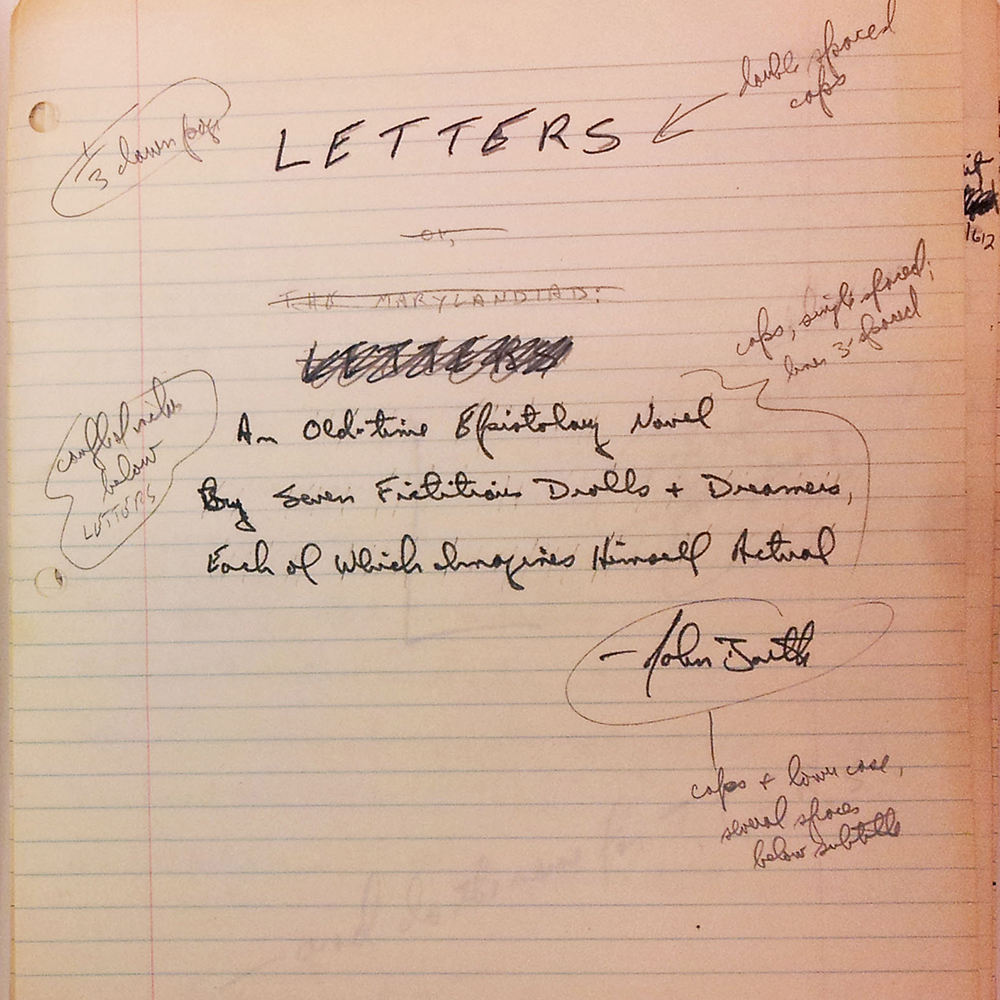 double spaced
caps
1/3 down page
LETTERS
or,
THE MARYLANDIAD:
LETTERS
caps, single-spaced;
lines 3-spaced
An Old-time Epistolary Novel
By Seven Fictitious Drolls + Dreamers,
Each of Which Imagines Himself Actual
below
LETTERS
—John Barth
caps + lower case,
several spaces
below subtitle
1612